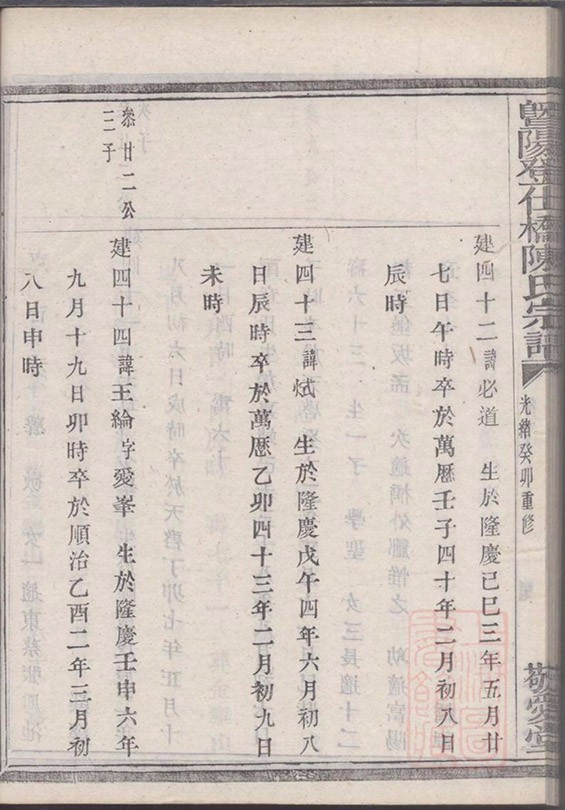 暨陽登仕橋陳氏宗譜
光緒癸卯重修
敬愛堂
建四十二諱必道 生於隆慶己巳三年五月廿
七日午時卒於萬厯壬子四十年二月初八日
辰時
建四十三諱烒 生於隆慶戊午四年六月初八
日辰時卒於萬厯乙卯四十三年二月初九日
未時
泰廿二公
三子
建四十四諱王綸字愛峯 生於隆慶壬申六年
九月十九日卯時卒於順治乙酉二年三月初
八日申時